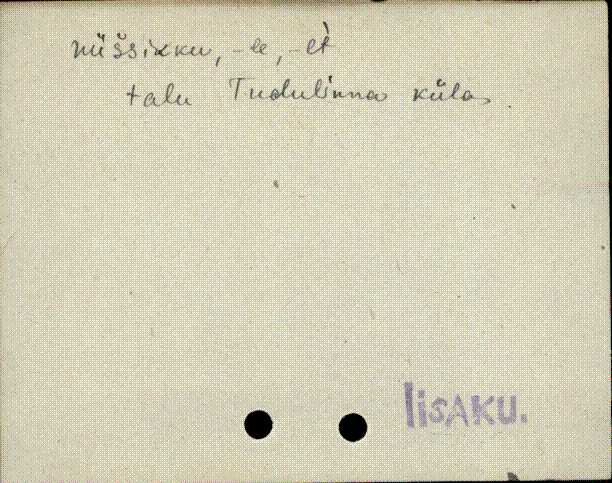 nüšsikku, -le, -lt̀
talu Tudulinna külas.
IisAKU.